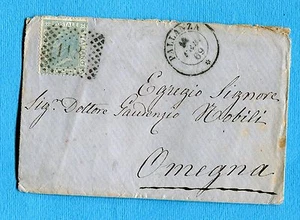 PALLANZA
69
Egregio Signore
Sigr. Dottore Gaudenzio Nobili
Omegna